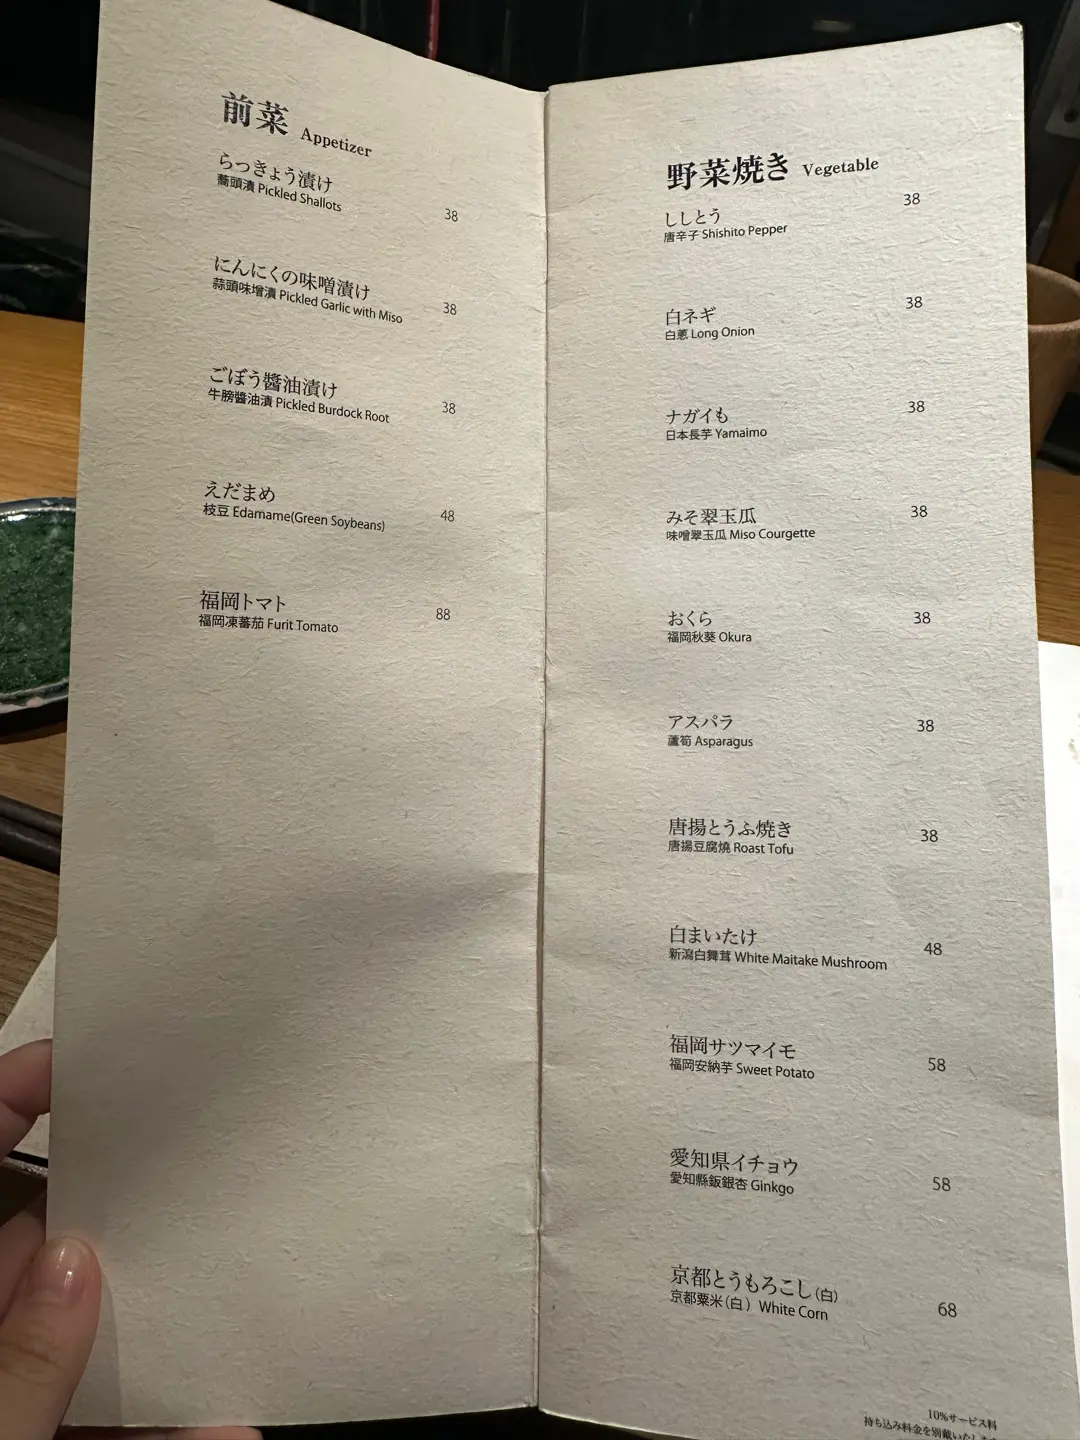 前菜 Appetizer
らっきょう漬け
蕎頭漬 Pickled Shallots
38
にんにくの味噌漬け
蒜頭味增漬 Pickled Garlic with Miso
38
ごぼう醬油漬け
牛膀醬油漬 Pickled Burdock Root
38
えだまめ
枝豆 Edamame(Green Soybeans)
48
福岡トマト
福岡凍蕃茄 Furit Tomato
88
野菜焼き Vegetable
ししとう
唐辛子 Shishito Pepper
38
白ネギ
白蔥 Long Onion
38
ナガイも
日本長芋 Yamaimo
38
みそ翠玉瓜
味噌翠玉瓜 Miso Courgette
38
おくら
福岡秋葵 Okura
38
アスパラ
蘆筍 Asparagus
38
唐揚とうふ焼き
唐揚豆腐燒 Roast Tofu
38
白まいたけ
新瀉白舞茸 White Maitake Mushroom
48
福岡サツマイモ
福岡安納芋 Sweet Potato
58
愛知県イチョウ
愛知縣飯銀杏 Ginkgo
58
京都とうもろこし(白)
京都粟米(白) White Corn
68
10%サービス料
持ち込み料金を別戴いたします